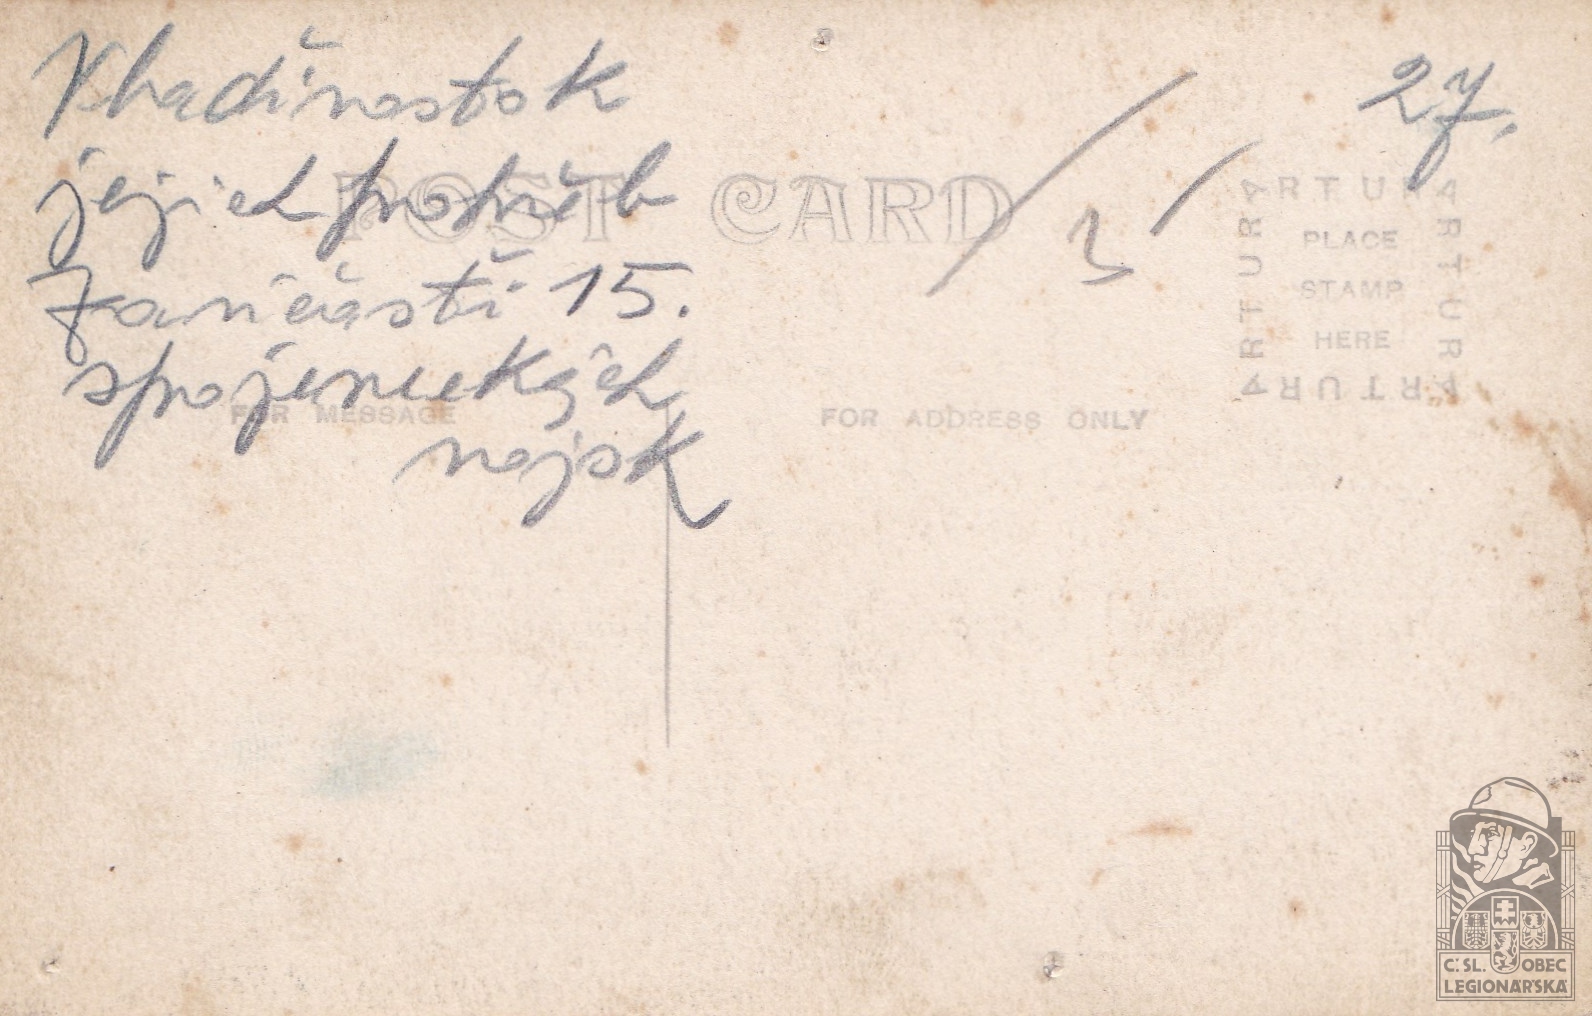 Vladivostok
27.
jejich pohřeb
POST CARD
za účasti 15.
spojeneckých
vojsk
ARTURA
ARTURA
ARTURA
ARTURA
PLACE
STAMP
HERE
FOR MESSAGE
FOR ADDRESS ONLY
Č.SL. OBEC
LEGIONÁŘSKÁ